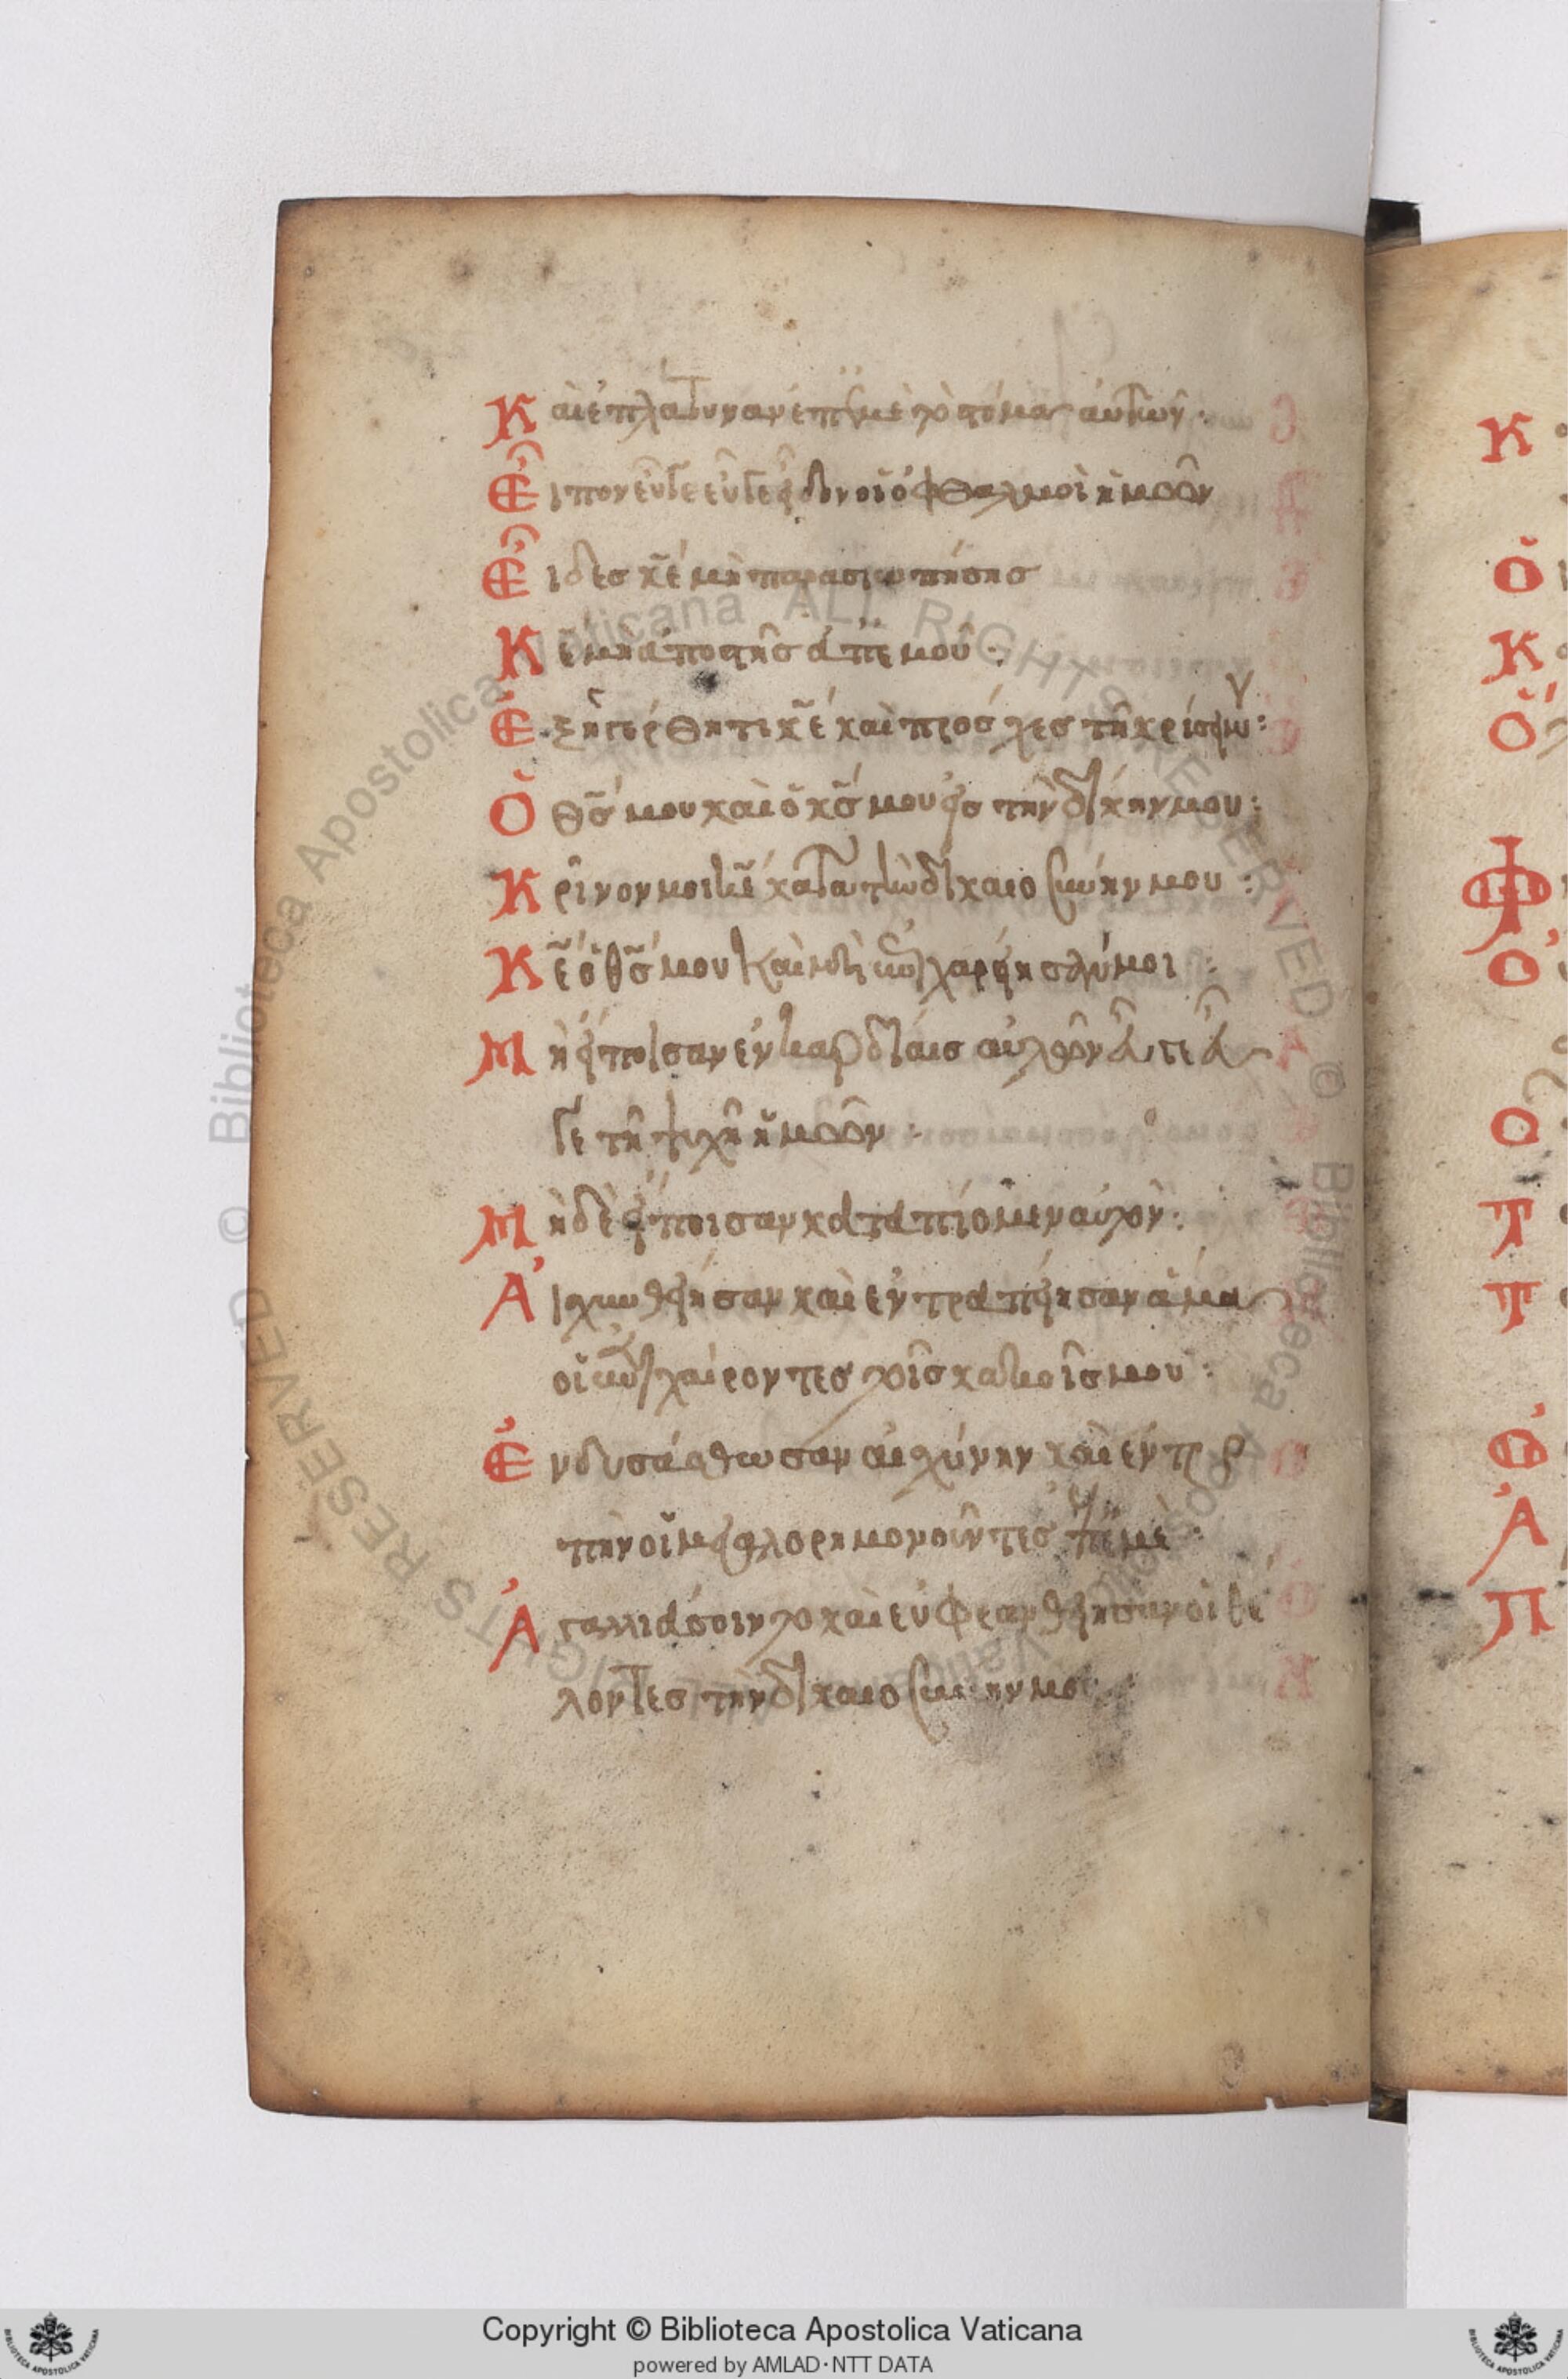 Καὶ ἐπλάτυναν ἐπ' ἐμὲ τὸ στόμα αὐτῶν:
Εἶπον εὖγε εὖγε εἶδον οἱ ὀφθαλμοὶ ἡμῶν
Εἶδες κ̅ε̅ μὴ παρασιωπήσης
Κ̅ε̅ μὴ ἀποστῆς ἀπ' ἐμοῦ:
Ἐξηγέρθητι κ̅ε̅ καὶ πρόσχες τῆ κρίσει μου:
Ὁ θ̅ς̅ μου καὶ ὁ κ̅ς̅ μου εἰς τὴν δίκην μου:
Κρῖνον μοι κ̅ε̅ κατὰ τὴν δικαιοσύνην μου:
Κ̅ε̅ ὁ θ̅ς̅ μου καὶ μὴ ἐπιχαρείησάν μοι:
Μὴ εἴποισαν ἐν καρδίαις αὐτῶν εὖγε εὖ
γε τῆ ψυχῆ ἡμῶν:
Μηδὲ εἴποισαν καταπίομεν αὐτόν:
Αἰσχυνθείησαν καὶ ἐντραπείησαν ἅμα
οἱ ἐπιχαίροντες τοῖς κακοῖς μου:
Ἐνδυσάσθωσαν αἰσχύνην καὶ ἐντρο
πὴν οἱ μεγαλορημονοῦντες ἐπ' ἐμέ:
Ἀγαλλιάσοιντο καὶ εὐφρανθείησαν οἱ θέ
λοντες τὴν δικαιοσύνην μου:
Copyright © Biblioteca Apostolica Vaticana
powered by AMLAD·NTT DATA